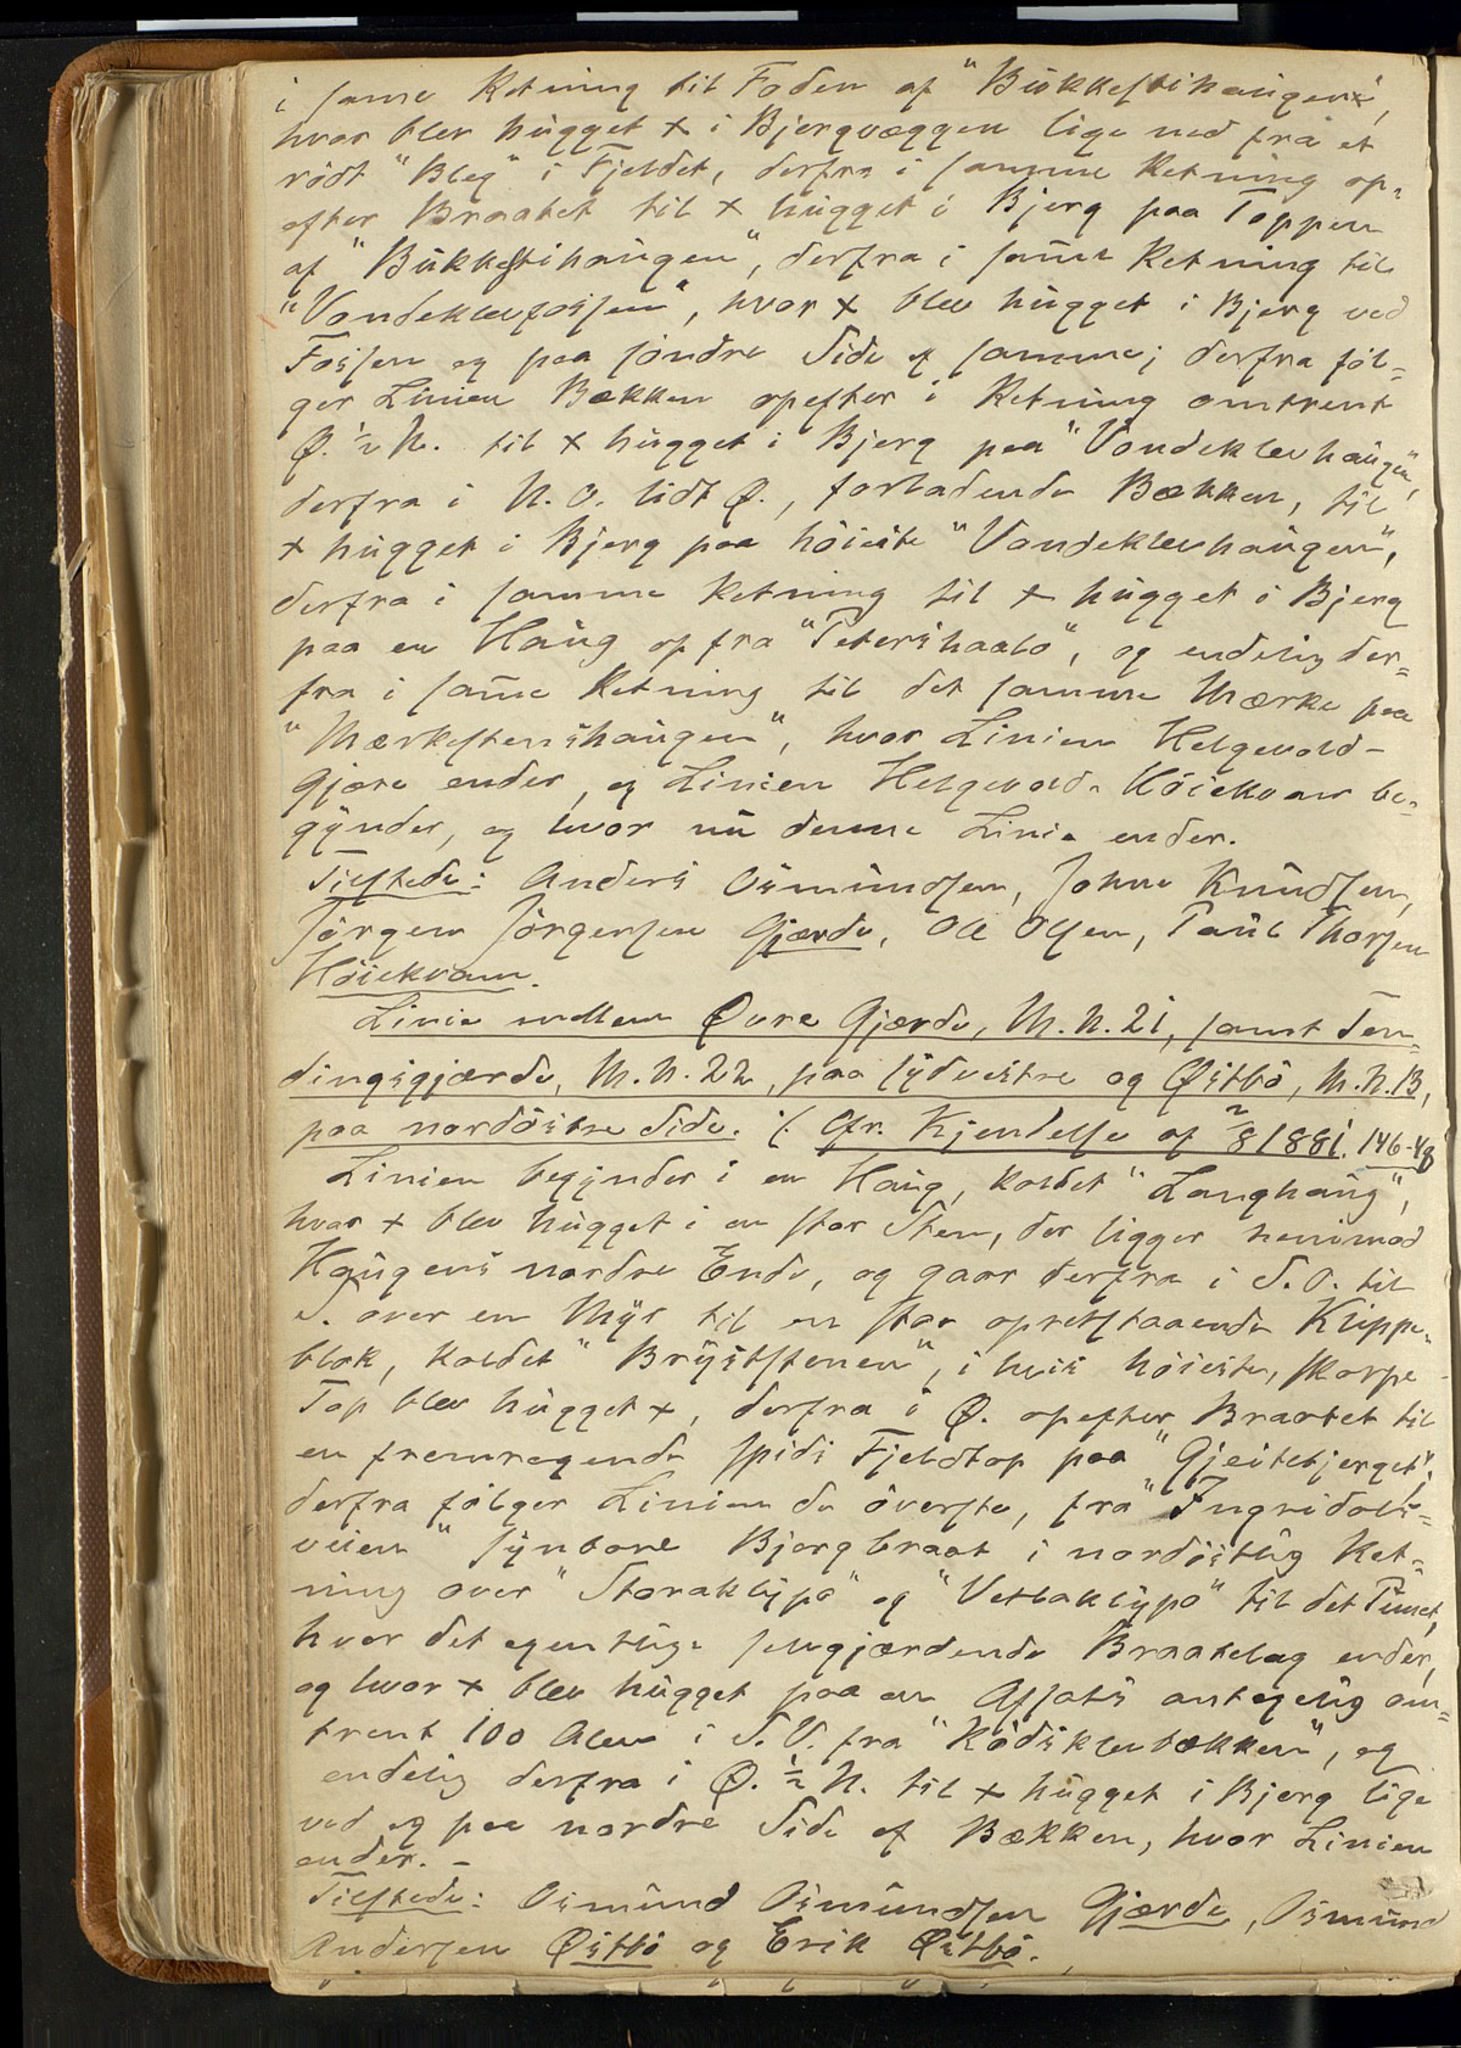 i samme Retning til Foden af "Bukkestihaugen",
hvor blev hugget + i Bjergvæggen lige ned fra et
rödt "Bleg" i Fjeldet, derfra i samme Retning op-
efter Braatet til + hugget i Bjerg paa Toppen
af "Bukkestihaugen", derfra i sam̄e Retning til
"Vondeklevfossen", hvor + blev hugget i Bjerg ved
Fossen og paa söndre Side af samme; derfra föl=
ger Linien Bækken opefter i Retning omtrent
Ø. ½ N. til + hugget i Bjerg paa "Vondeklevhaugen",
derfra i N.O. lidt Ø., forladende Bækken, til
+ hugget i Bjerg paa höieste "Vondeklevhaugen",
derfra i samme Retning til + hugget i Bjerg
paa en Haug op fra "Petershaalo", og endelig der=
fra i sam̄e Retning til det samme Mærke paa
"Mærkestenshaugen", hvor Linien Helgevold-
Gjære ender, og Linien Helgevold-Höiekvam be-
gynder, og hvor nu denne Linie ender.
Tilstede: Anders Osmundsen, Johne Knudsen,
Jörgen Jörgensen Gjærde, Ole Olsen, Paul Thorsen
Höiekvam.
Linie mellem Øvre Gjærde, M.N. 21, samt Ten-
dingsgjærde, M.N. 22, paa sydvestre og Østbö, M.N. 13,
paa nordöstre Side. /: Cfr. Kjendelse af 2/8 1881. 146-48
Linien begynder i en Haug, kaldet "Langhaug",
hvor + blev hugget i en stor Sten, der ligger henimod
Haugens nordre Ende, og gaar derfra i S.O. til
S. over en Myr til en stor opretstaaende Klippe-
blok, kaldet "Bryststenen", i hvis höieste, skarpe
Top blev hugget +, derfra i Ø. opefter Braatet til
en fremragende spids Fjeldtop paa "Gjeitebjerget",
derfra fölger Linien de överste, fra "Ingridals=
veien" synbare Bjergbraat i nordöstlig Ret-
ning over "Storaklypo" og "Vetlaklypo" til det Punct,
hvor det egentlige selvgjærdende Braatelag ender,
og hvor + blev hugget paa en Afsats antagelig om=
trent 100 Alen i S.V. fra "Rödsklevbækken", og
endelig derfra i Ø. ½ N. til + hugget i Bjerg lige
ved og paa nordre Side af Bækken, hvor Linien
ender. -
Tilstede: Osmund Osmundsen Gjærde, Osmund
Andersen Østbö og Erik Østbö.